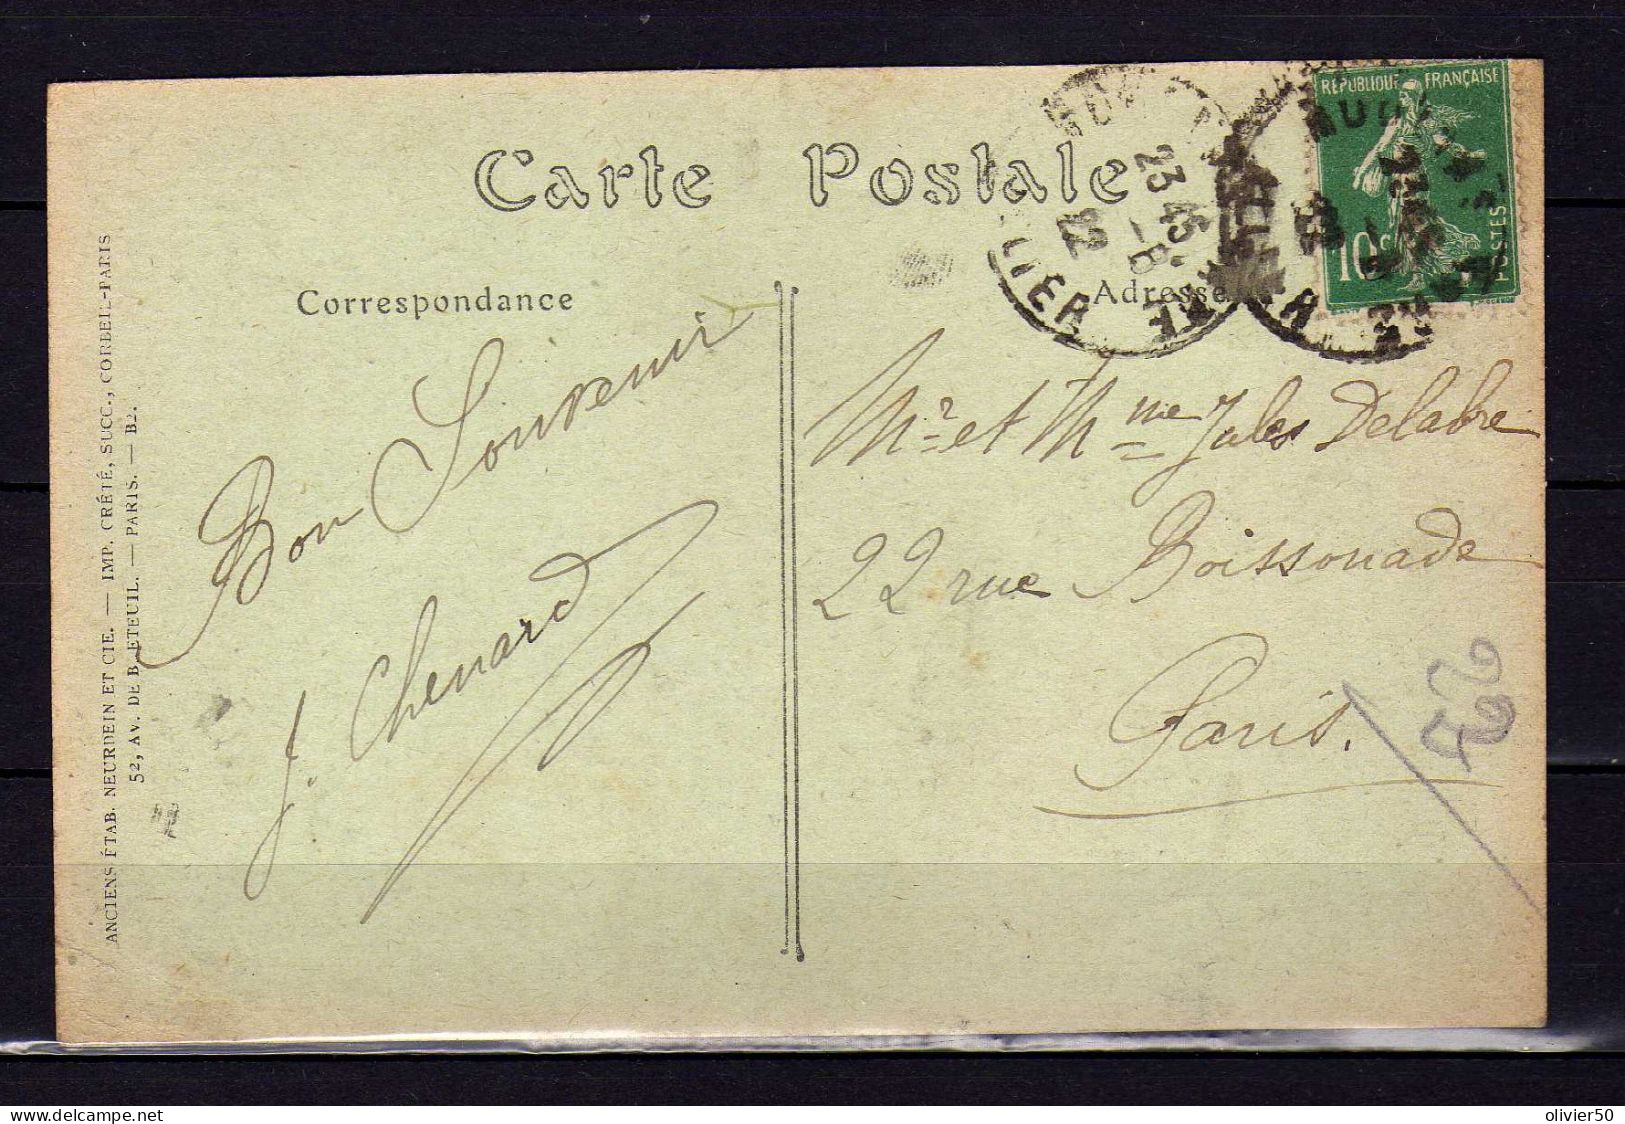 Carte Postale
Correspondance
Adresse
RÉPUBLIQUE FRANÇAISE
10c
POSTES
23 45
-8
22
LIER
Bon Souvenir
J. Chenard
Mr et Mme Jules Delabre
22 rue Boissonade
Paris.
ANCIENS ÉTAB. NEURDEIN ET CIE. — IMP. CRÉTÉ, SUCC., CORBEIL-PARIS
52, AV. DE BRETEUIL. — PARIS. — B2.
olivier50